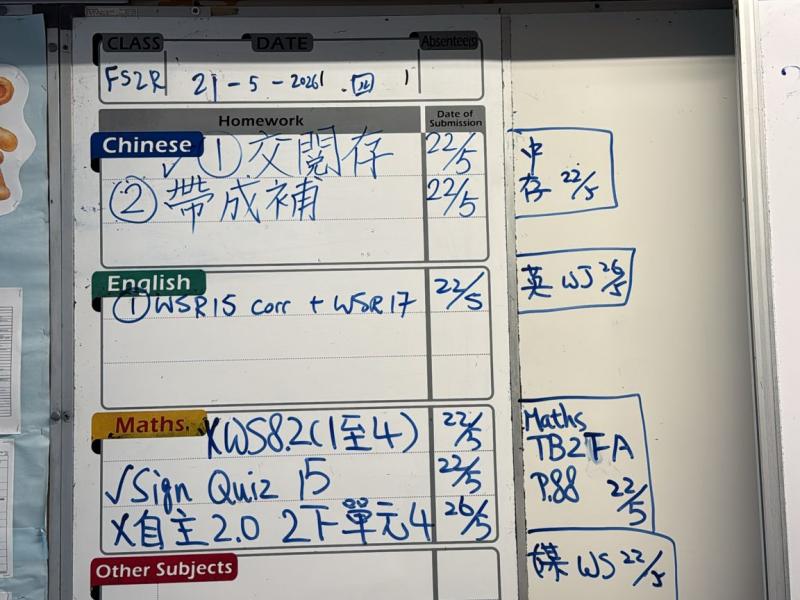 CLASS DATE Absentee(s)
FS2R 21-5-2026 四 1
Homework Date of Submission
Chinese ✓① 交閱存 22/5
② 帶成補 22/5
English
① WSR15 corr + WSR17 22/5
Maths XWS8.2(1至4) 22/5
✓Sign Quiz 15 22/5
X自主2.0 2下單元4 26/5
Other Subjects
中
存 22/5
英 WJ 26/5
Maths
TB2TA
P.88 22/5
WS 22/5